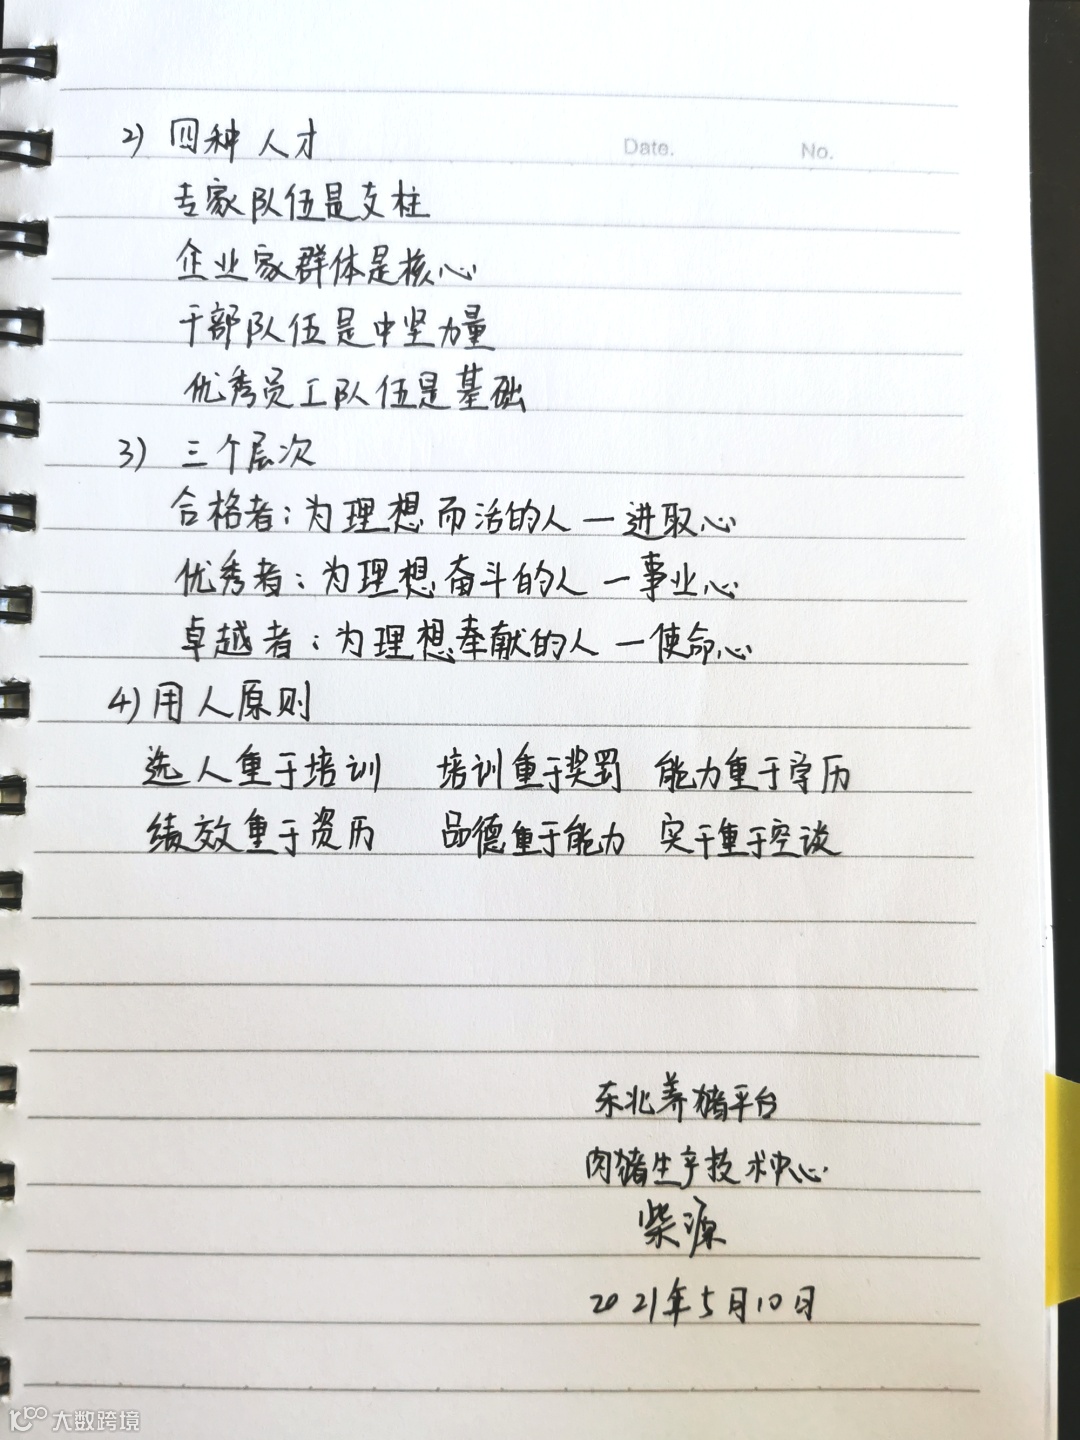 Date.
No.
2) 四种人才
专家队伍是支柱
企业家群体是核心
干部队伍是中坚力量
优秀员工队伍是基础
3) 三个层次
合格者：为理想而活的人—进取心
优秀者：为理想奋斗的人—事业心
卓越者：为理想奉献的人—使命心
4) 用人原则
选人重于培训 培训重于奖罚 能力重于学历
绩效重于资历 品德重于能力 实干重于空谈
东北养猪平台
肉猪生产技术中心
柴源
2021年5月10日
大数跨境